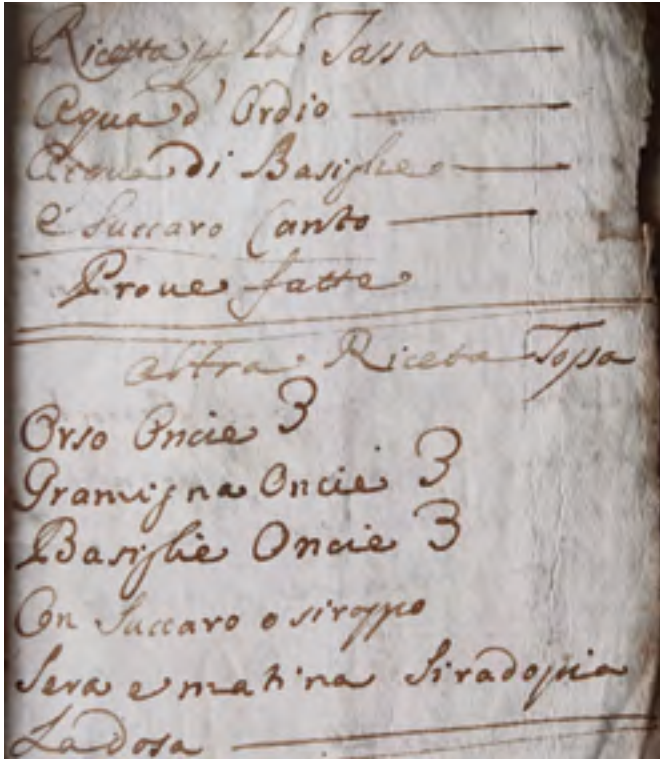 Ricetta p La Tassa
Aqua d'Ordio
Acqua di Basiglie
e Succaro Canto
Proue fatte
altra Riceta Tossa
Orso Oncie 3
Gramigna Oncie 3
Basiglie Oncie 3
Con Succaro o siroppo
Sera e matina Siradopia
La dosa